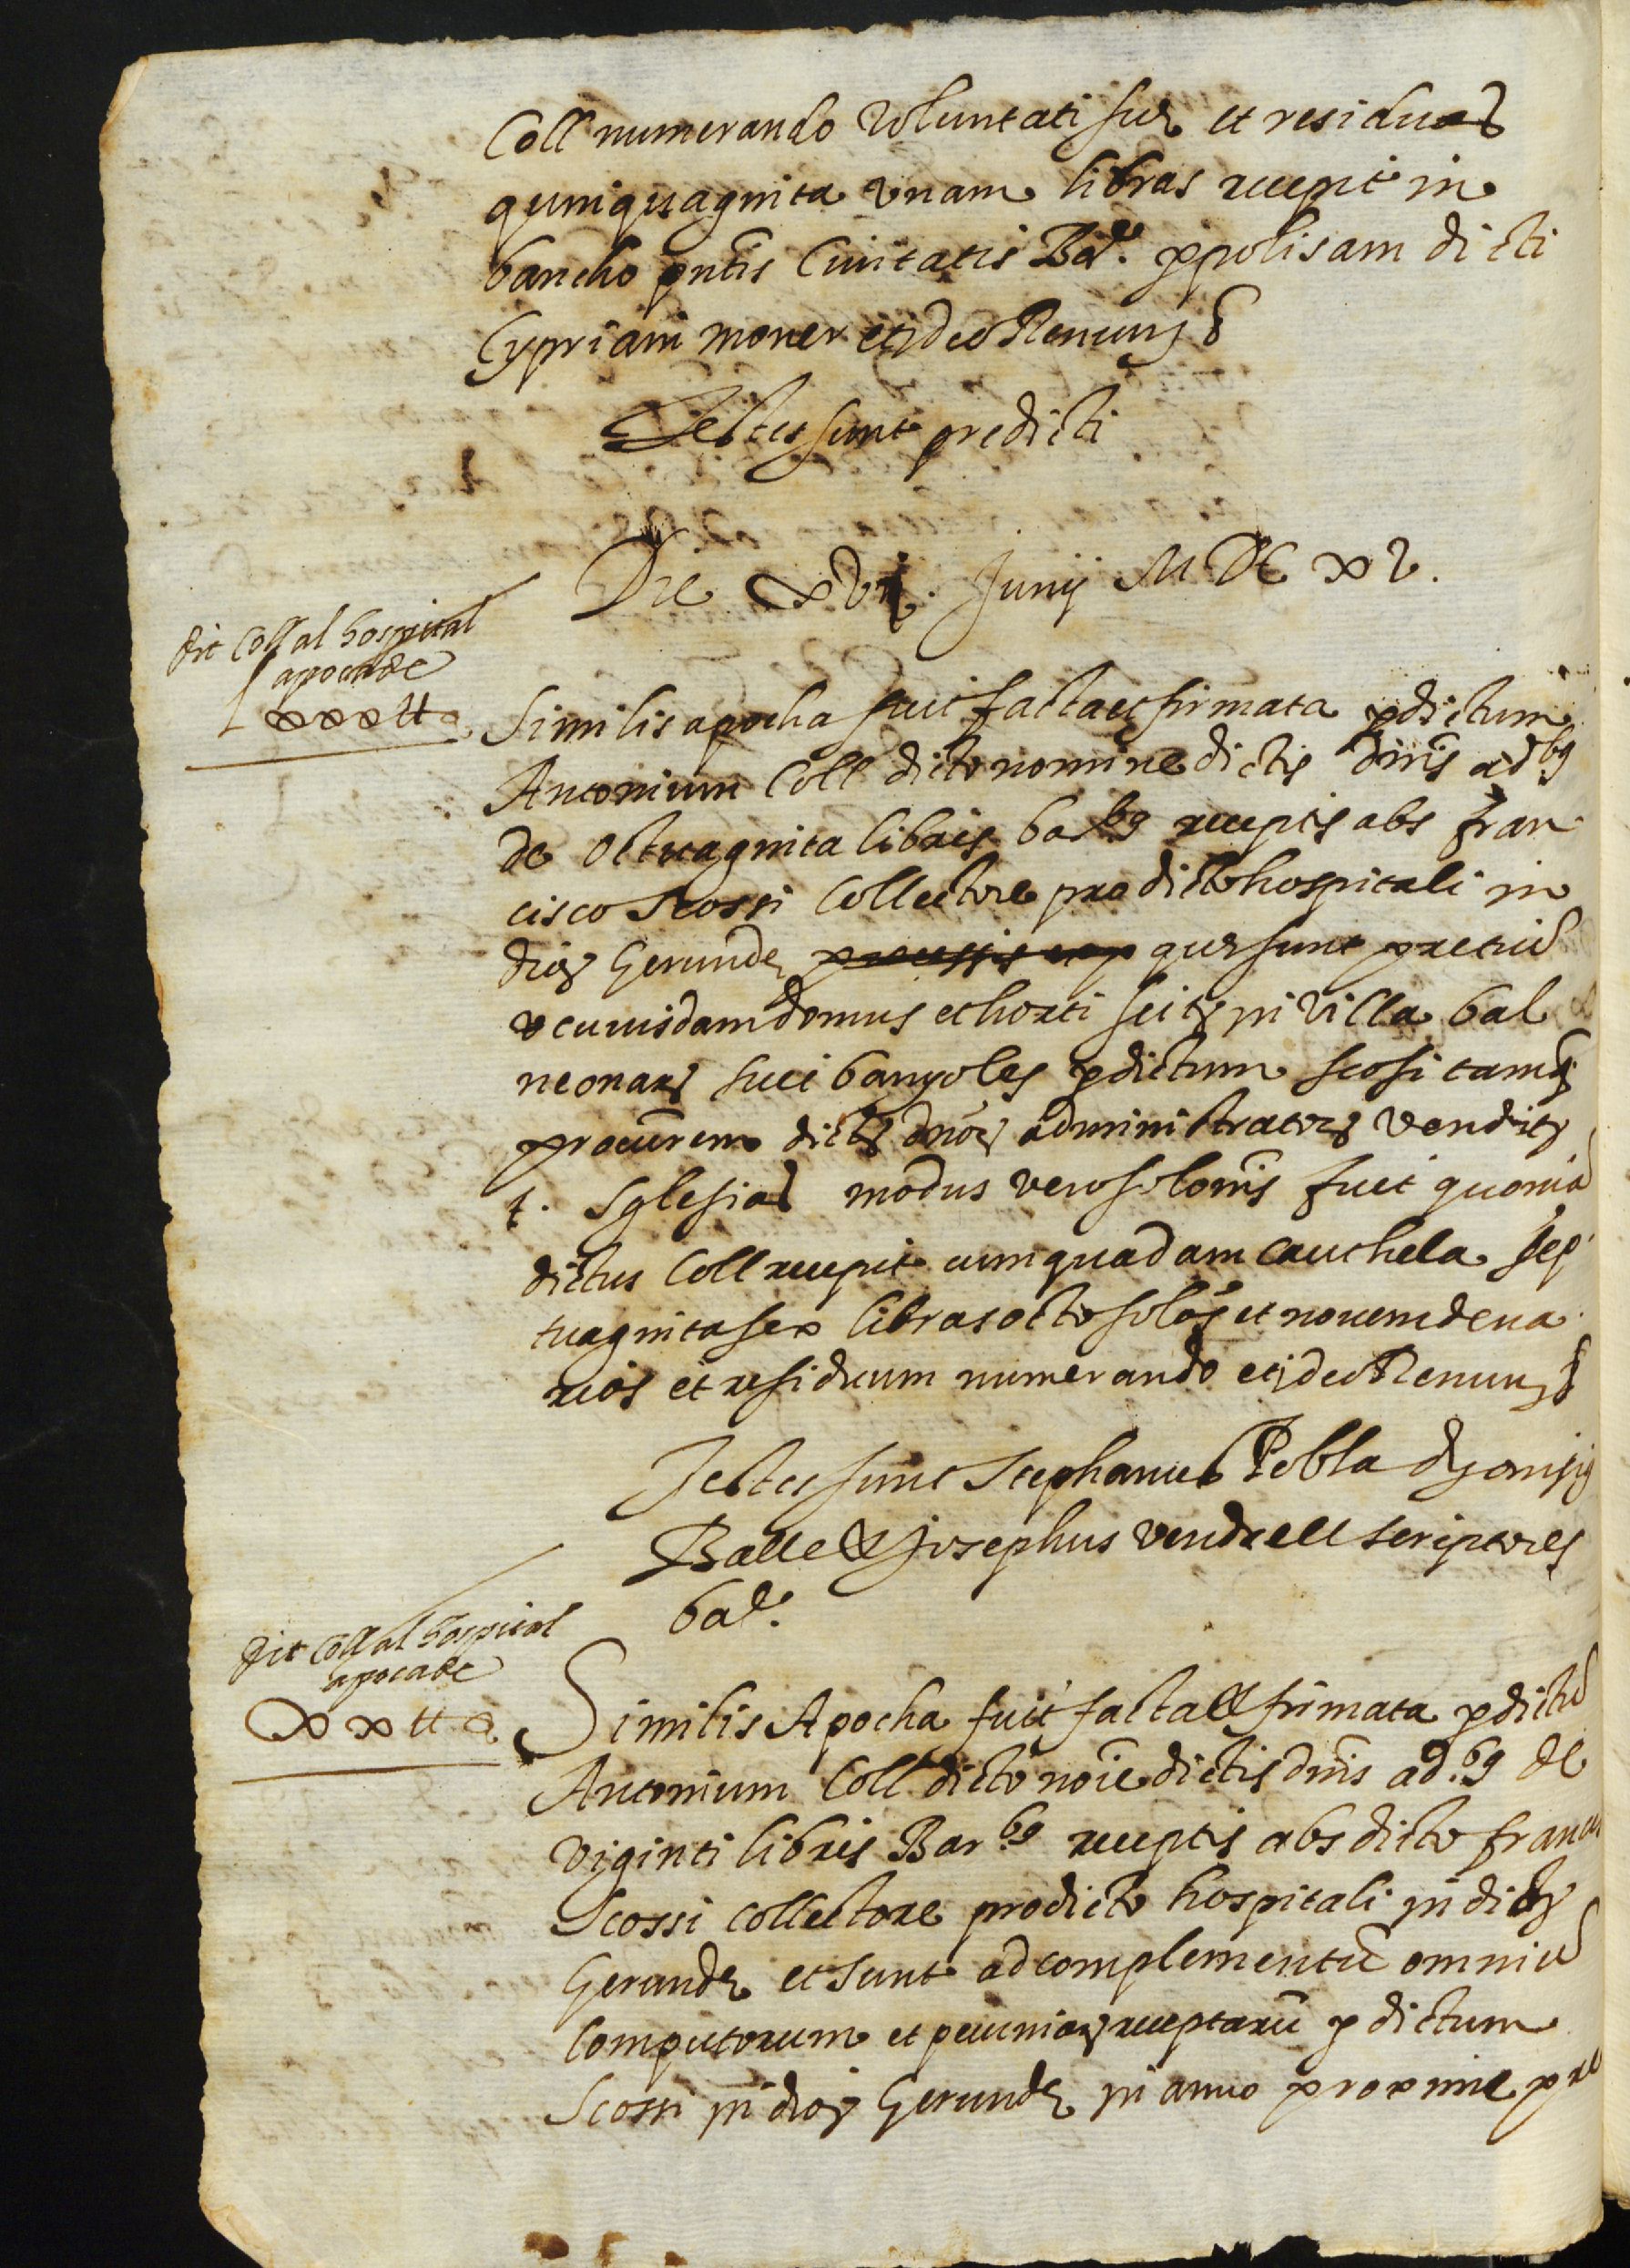 Coll numerando voluntati suę et residuas
quinquaginta unam libras recepit in
bancho pntis Civitatis Bar.e p polisam dicti
Cypriani moner et ideo Renun &
Testes sunt predicti
Die xvi. Junij MDC xv.
dit Coll al hospital
apoca de
Lxxx ll
Similis apocha fuit facta et firmata p dictum
Antonium Coll dicto nomine dictis dnis ad.bus
de octuaginta libris bar.bus receptis abs fran
cisco Scossi Collectore pro dicto hospitali in
dioc Gerundę quę sunt pretiū
cuiusdam domus et horti sitę in villa bal
neonarę sive banyoles p dictum scosi tamq
procurem dictę dnoę administratoę venditę
t. Sglesias modus vero solonis fuit quoniā
dictus Coll recepit cum quadam cauthela sep
tuaginta sex libras octo solos et novem dena
rios et residuum numerando et ideo Renun &
Testes sunt Stephanus Pobla dyonisius
Balle & Josephus vendrell scriptores
bar.e
dit Coll al hospital
apoca de
xx ll
Similis Apocha fuit facta & firmata p dictū
Antonium Coll dicto noie dictis dnis ad.bus de
viginti libris Bar.bus receptis abs dicto franc
Scossi collectore pro dicto hospitali in dictę
Gerundę et sunt ad complementū omniū
Computorum et pecuniaę receptarū p dictum
Scossi in dioc Gerundę in anno proxime pre